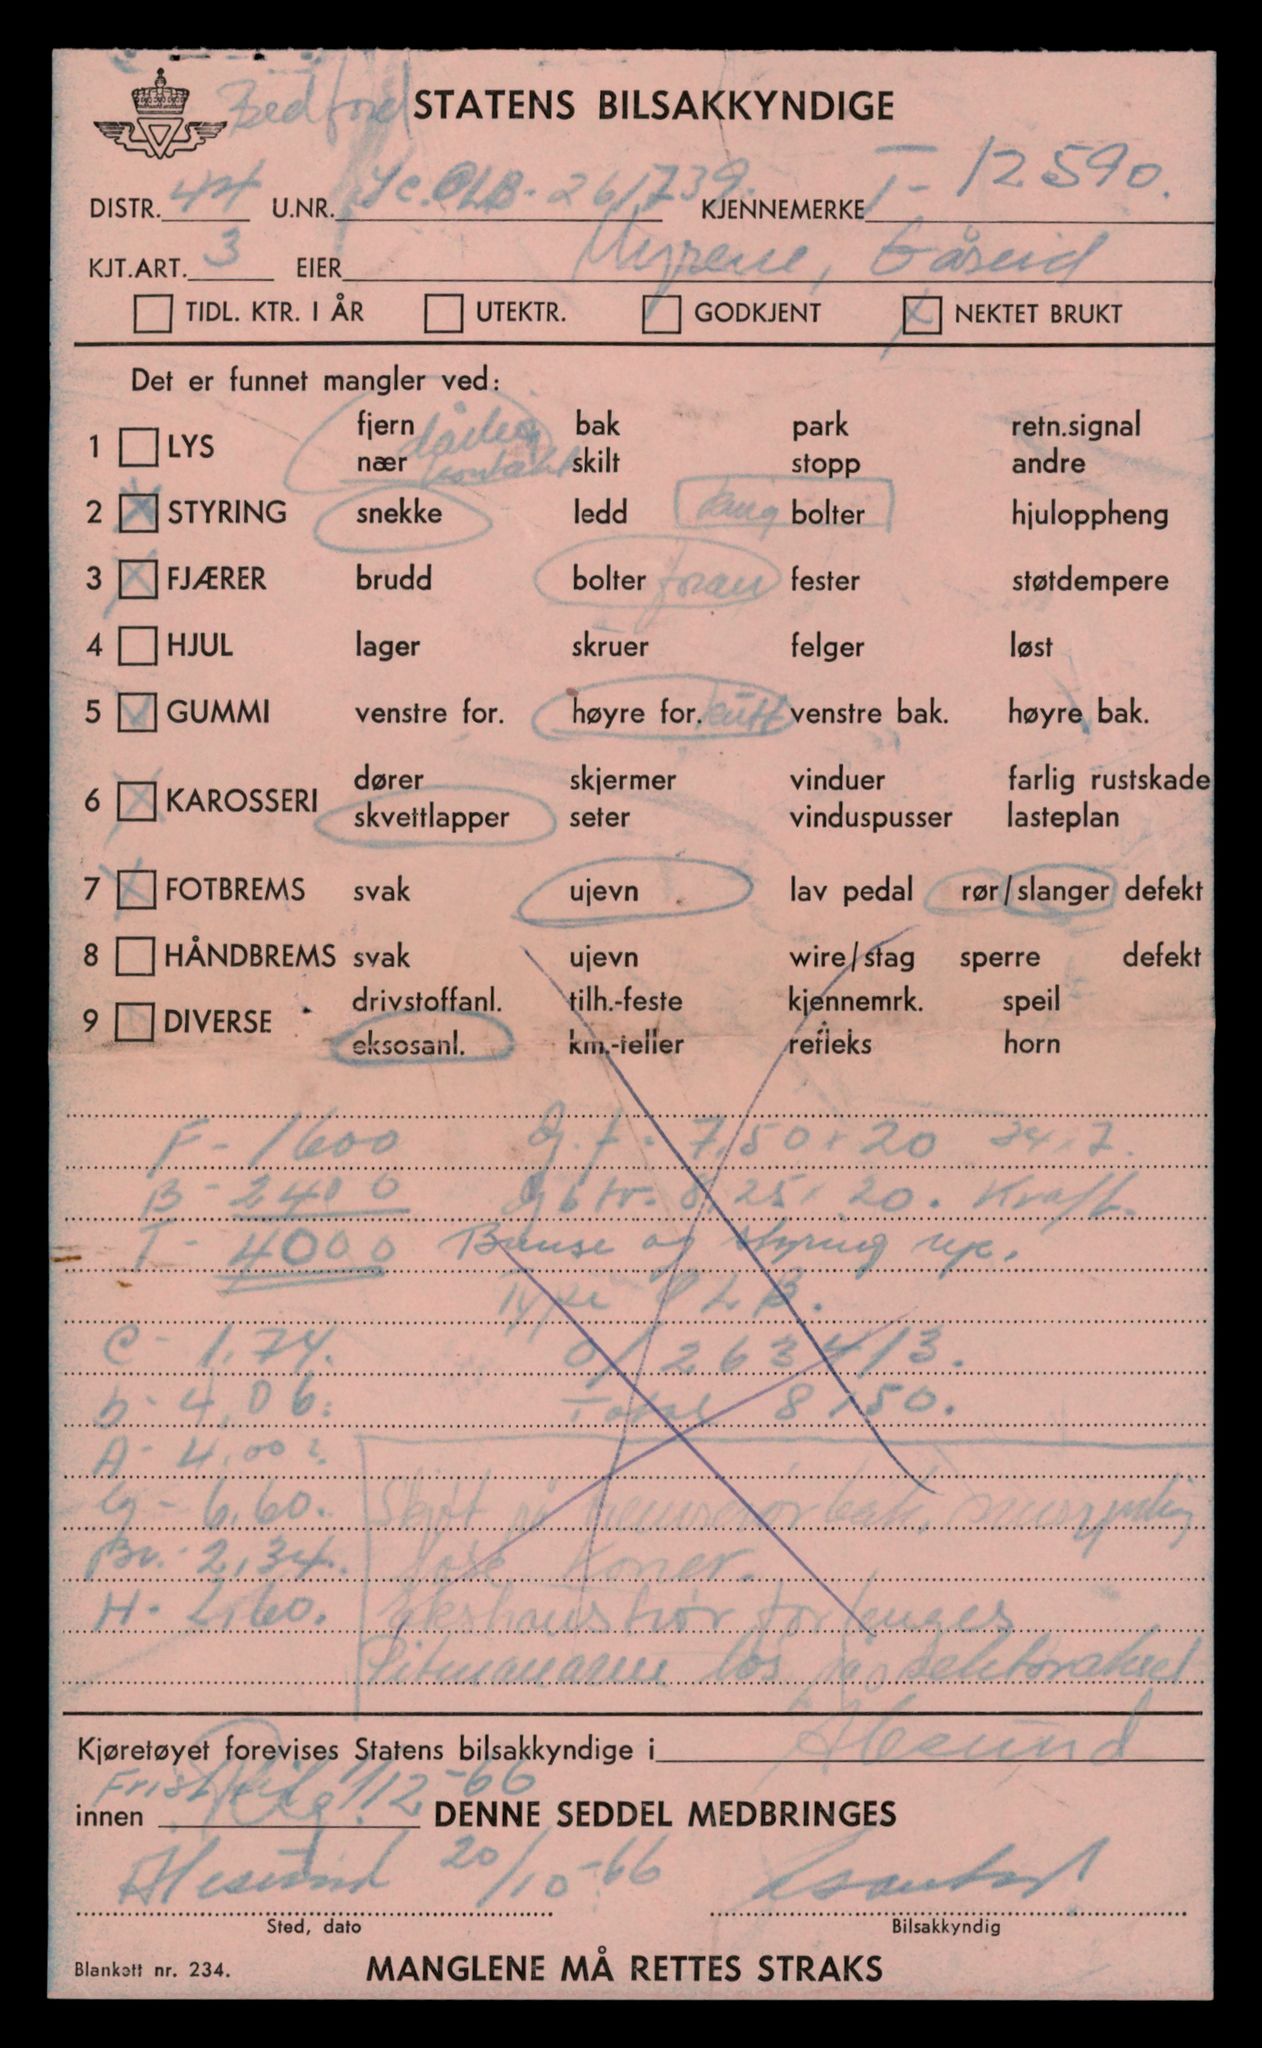 Bedford STATENS BILSAKKYNDIGE
DISTR. 44 U.NR. KJENNEMERKE T- 12590.
KJT.ART. 3 EIER Myrene, Gåseid
TIDL. KTR. I ÅR UTEKTR. GODKJENT X NEKTET BRUKT
Det er funnet mangler ved:
1 LYS fjern bak park retn.signal
dårlig
nær kontakt skilt stopp andre
2 X STYRING snekke ledd lang bolter hjuloppheng
3 X FJÆRER brudd bolter foran fester støtdempere
4 HJUL lager skruer felger løst
5 GUMMI venstre for. høyre for. kutt venstre bak. høyre bak.
6 X KAROSSERI dører skjermer vinduer farlig rustskade
skvettlapper seter vinduspusser lasteplan
7 X FOTBREMS svak ujevn lav pedal rør/slanger defekt
8 HÅNDBREMS svak ujevn wire/stag sperre defekt
9 DIVERSE drivstoffanl. tilh.-feste kjennemrk. speil
eksosanl. km.-teller refleks horn
F- 1600 G.f- 7,50 x 20 34 x 7.
B- 2400 8,25 x 20. Kraft.
T- 4000 og styring nye.
Type OLB.
C- 1,74. 01263413.
b- 4,06. Total 8,50.
A- 4,00?
G- 6,60. Skjøt på bremserør bak,
Br.- 2,34. løse
H- Ekshaustrør forlenges
Pitmanarm løs på
Kjøretøyet forevises Statens bilsakkyndige i Ålesund
Frist til
innen 1/12-66 DENNE SEDDEL MEDBRINGES
Ålesund 20/10-66
Sted, dato Bilsakkyndig
Blankett nr. 234. MANGLENE MÅ RETTES STRAKS